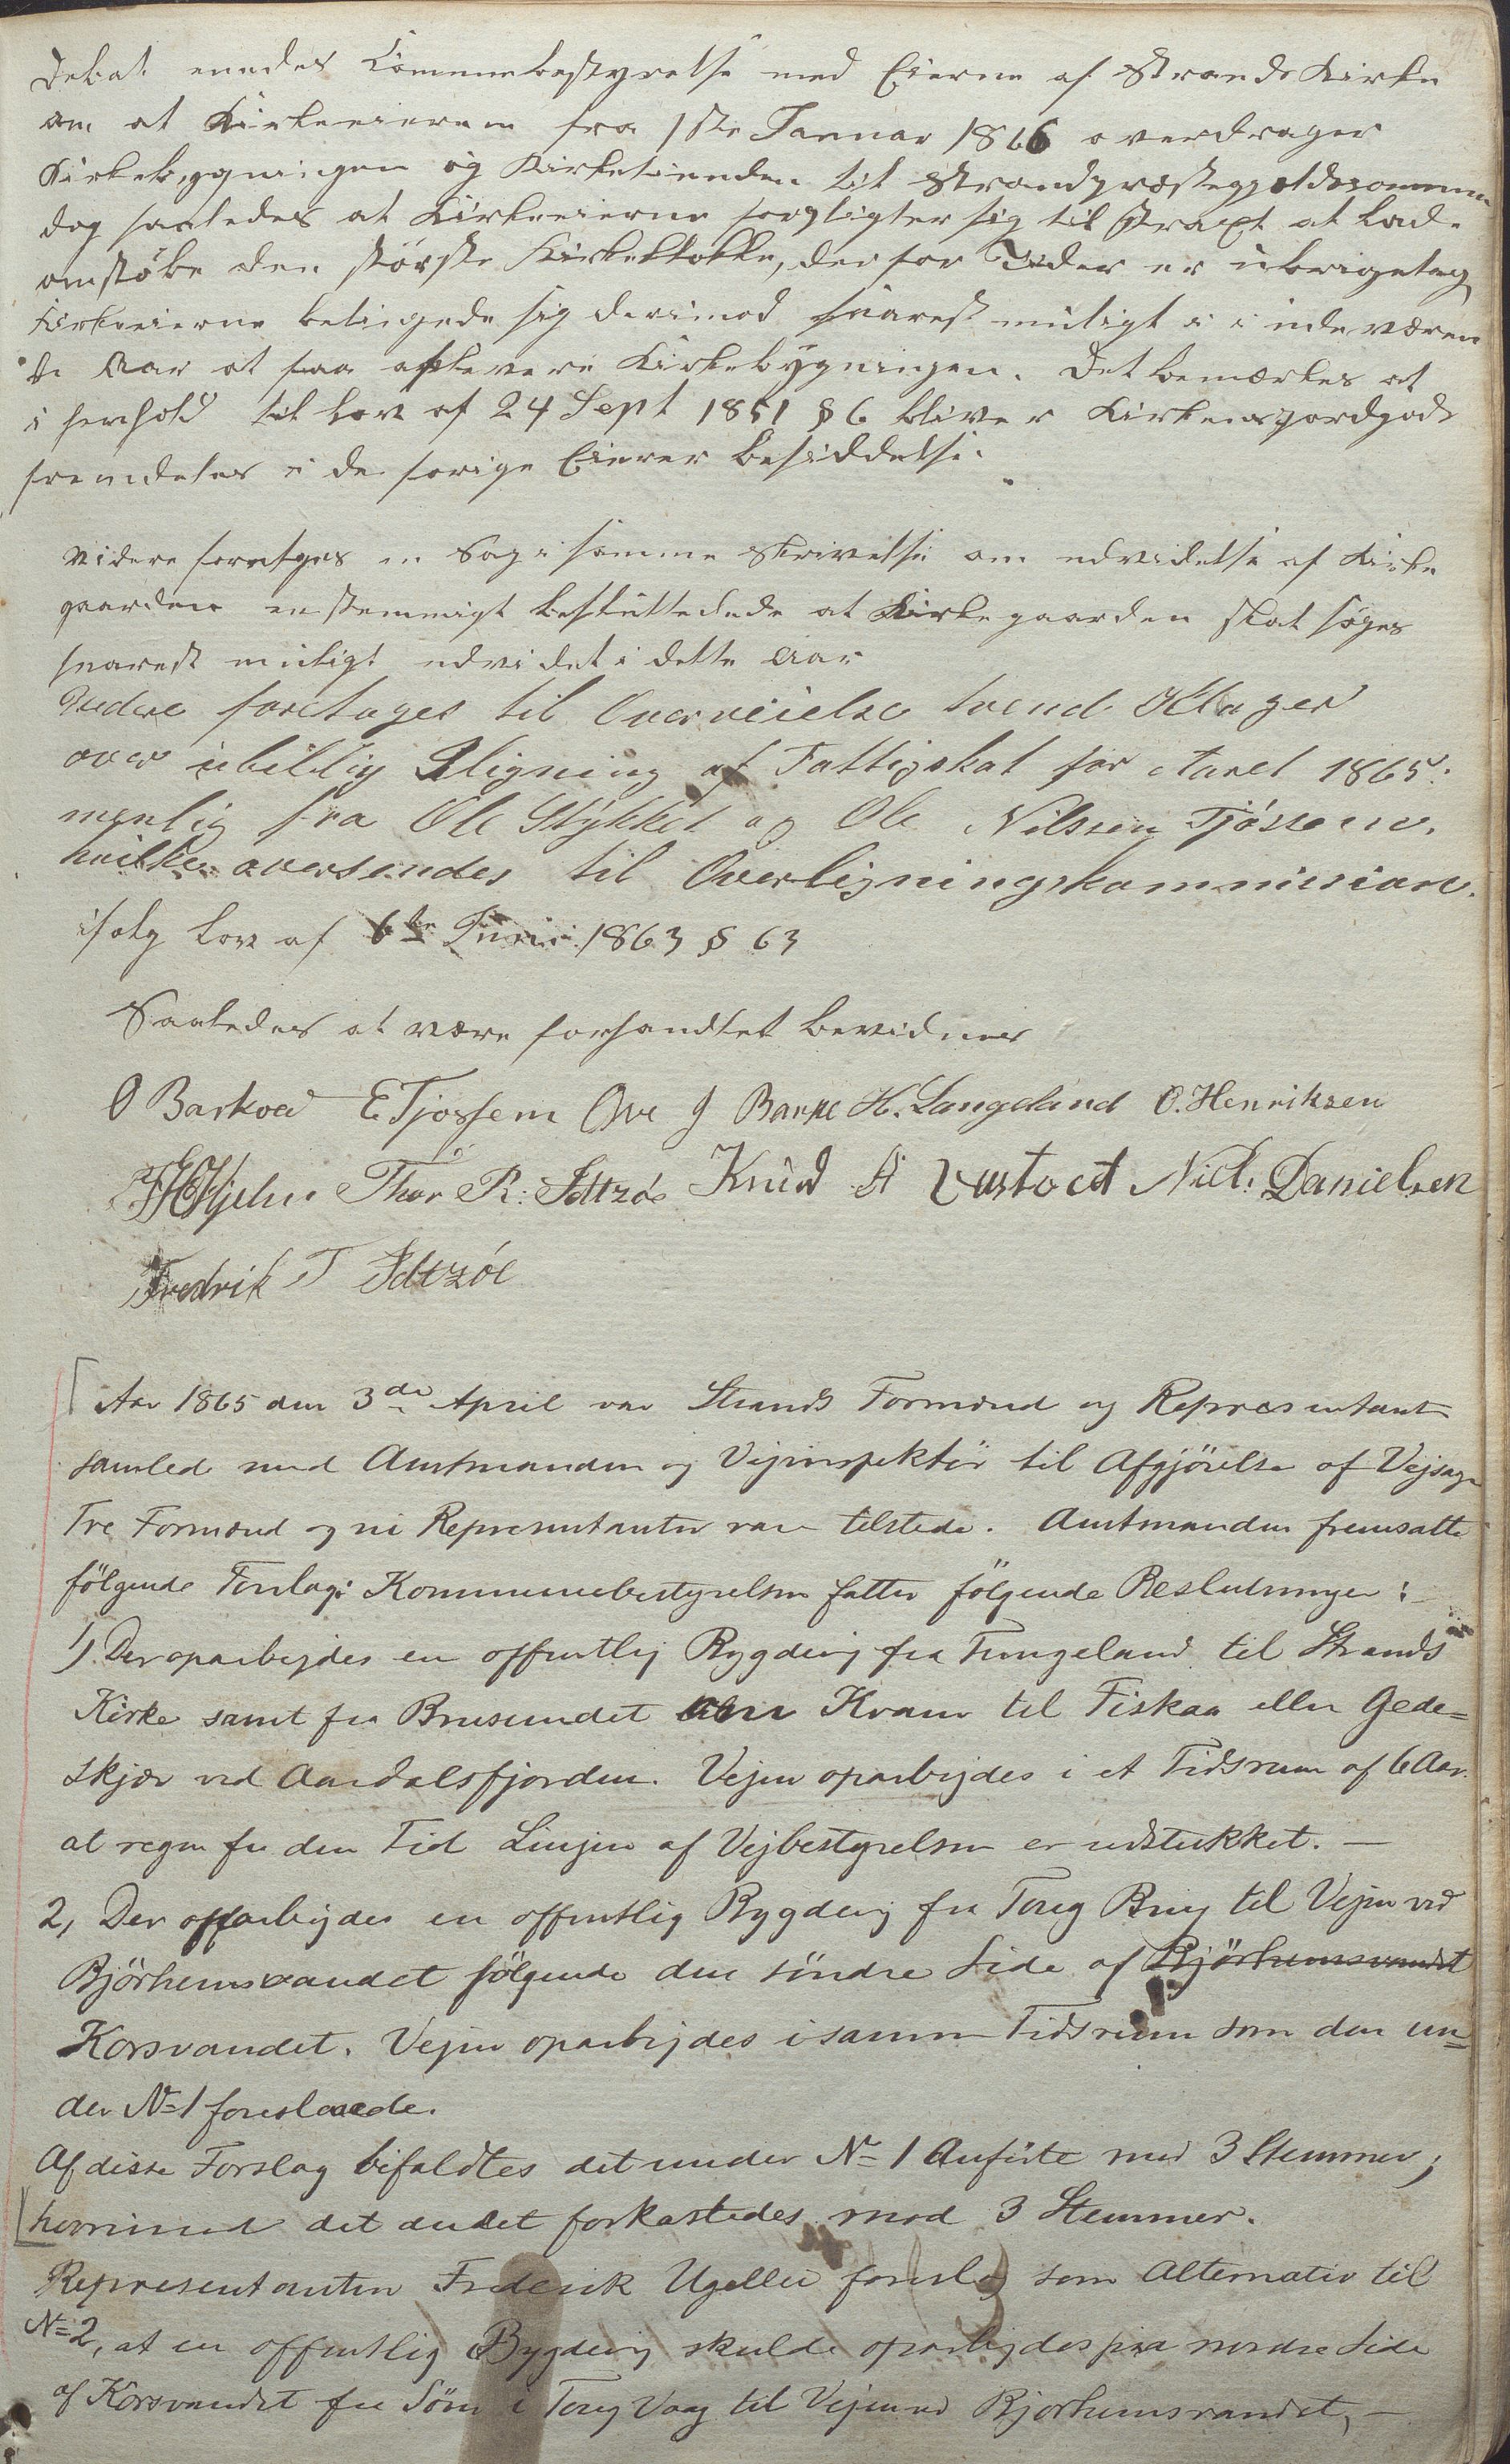 Debat enedes Communebestyrelse med Eierne af Strands Kirke
om at Kirkeeierne fra 1ste Januar 1866 overdrager
Kirkebygningen og Kirketienden til Strandpræstegjeldscommune
dog saaledes at Kirkeeierne forpligter sig til straxt at lade
omstøbe den største Kirkeklokke, der for Tiden er ubrugelig
Kirkeeierne betingede sig derimod snarest muligt i indeværen
de Aar at faa aflevere Kirkebygningen. Det bemærkes at
i henhold til Lov af 24 Sept 1851 § 6 bliver Kirkens Jordgods
fremdeles i de forige Eierer besiddelse.
Videre foretoges en Sag i samme Skrivelse om udvidelse af Kirke
gaarden enstemmigt besluttedede at Kirkegaarden skal søges
snarest muligt udvidet i dette Aar
Videre foretages til Overveielse tvende Klager
over ubillig Ligning af Fattigskat for Aaret 1865:
nemlig fra Ole Stykket og Ole Nilssen Tjössem.
hvilke oversendes til Overligningskommission.
ifølg Lov af 6te Juni 1863 § 63
Saaledes at være forhandlet bevidnes
O Barkved E Tjossem Ove J Barke H. Langeland O. Henriksen
Thor R: Idtzøe Knud Niels Danielsen
Fredrik T Idtzøe
Aar 1865 den 3de April var Strands Formænd og Repræsentant
samlede med Amtmanden og Vejinspektör til Afgjörelse af Vejsage
Tre Formænd og ni Representanter vare tilstede. Amtmanden fremsatte
fölgende Forslag: Kommunebestyrelsen fatter fölgende Beslutninger:
1) Der oparbejdes en offentlig Bygdevej fra Tungeland til Strands
Kirke samt fra Brusundet over Kvam til Fiskaa eller Gede=
skjær ved Aardalsfjorden. Vejen oparbejdes i et Tidsrum af 6 Aar.
at regne fra den Tid Linjen af Vejbestyrelsen er udstukket. —
2, Der oparbejdes en offentlig Bygdevej fra Toug Brug til Vejen ved
Björheimsvandet fölgende den söndre Side af Bjørheimsvandet
Korsvandet. Vejen oparbejdes i samme Tidsrum som den un=
der No 1 foreslaaede.
Af disse Forslag bifaldtes det under No 1 Anförte med 3 Stemmer;
hvorimod det andet forkastedes mod 3 Stemmer.
Representanten Frederik Ugelle foreslog som Alternativ til
No 2, at en offentlig Bygdevej skulde oparbejdes paa nordre Side
af Korsvandet fra Söen i Toug Vaag til Vejen ved Bjorheimsvandet, —